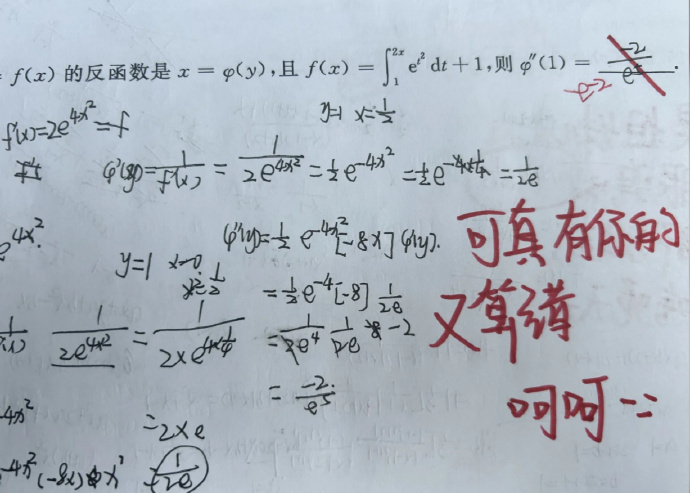 f(x) 的反函数是 x = φ(y),且 f(x) = ∫₁²ˣ e^{t²} dt + 1,则 φ″(1) = -2/e⁵
e^-2
y=1 x=1/2
f'(x)=2e^{4x²}=f
φ'(y)=1/f'(x)=1/(2e^{4x²})=1/2 e^{-4x²}=1/2 e^{-4x1/4}=1/(2e)
e^{4x²}.
φ″(y)=1/2 e^{-4x²}[-8x]φ'(y).
y=1 x=0.
x=1/2
=1/2 e^{-4}[-8] 1/(2e)
1/(2e^{4x²}) = 1/(2×e^{4×1/4})
=1/(2e⁴) 1/(2e) -8 -2
= -2/e⁵
-4x²
=2×e
-4x² (-8x) x'
=1/(2e)
可真有你的
又算错
呵呵